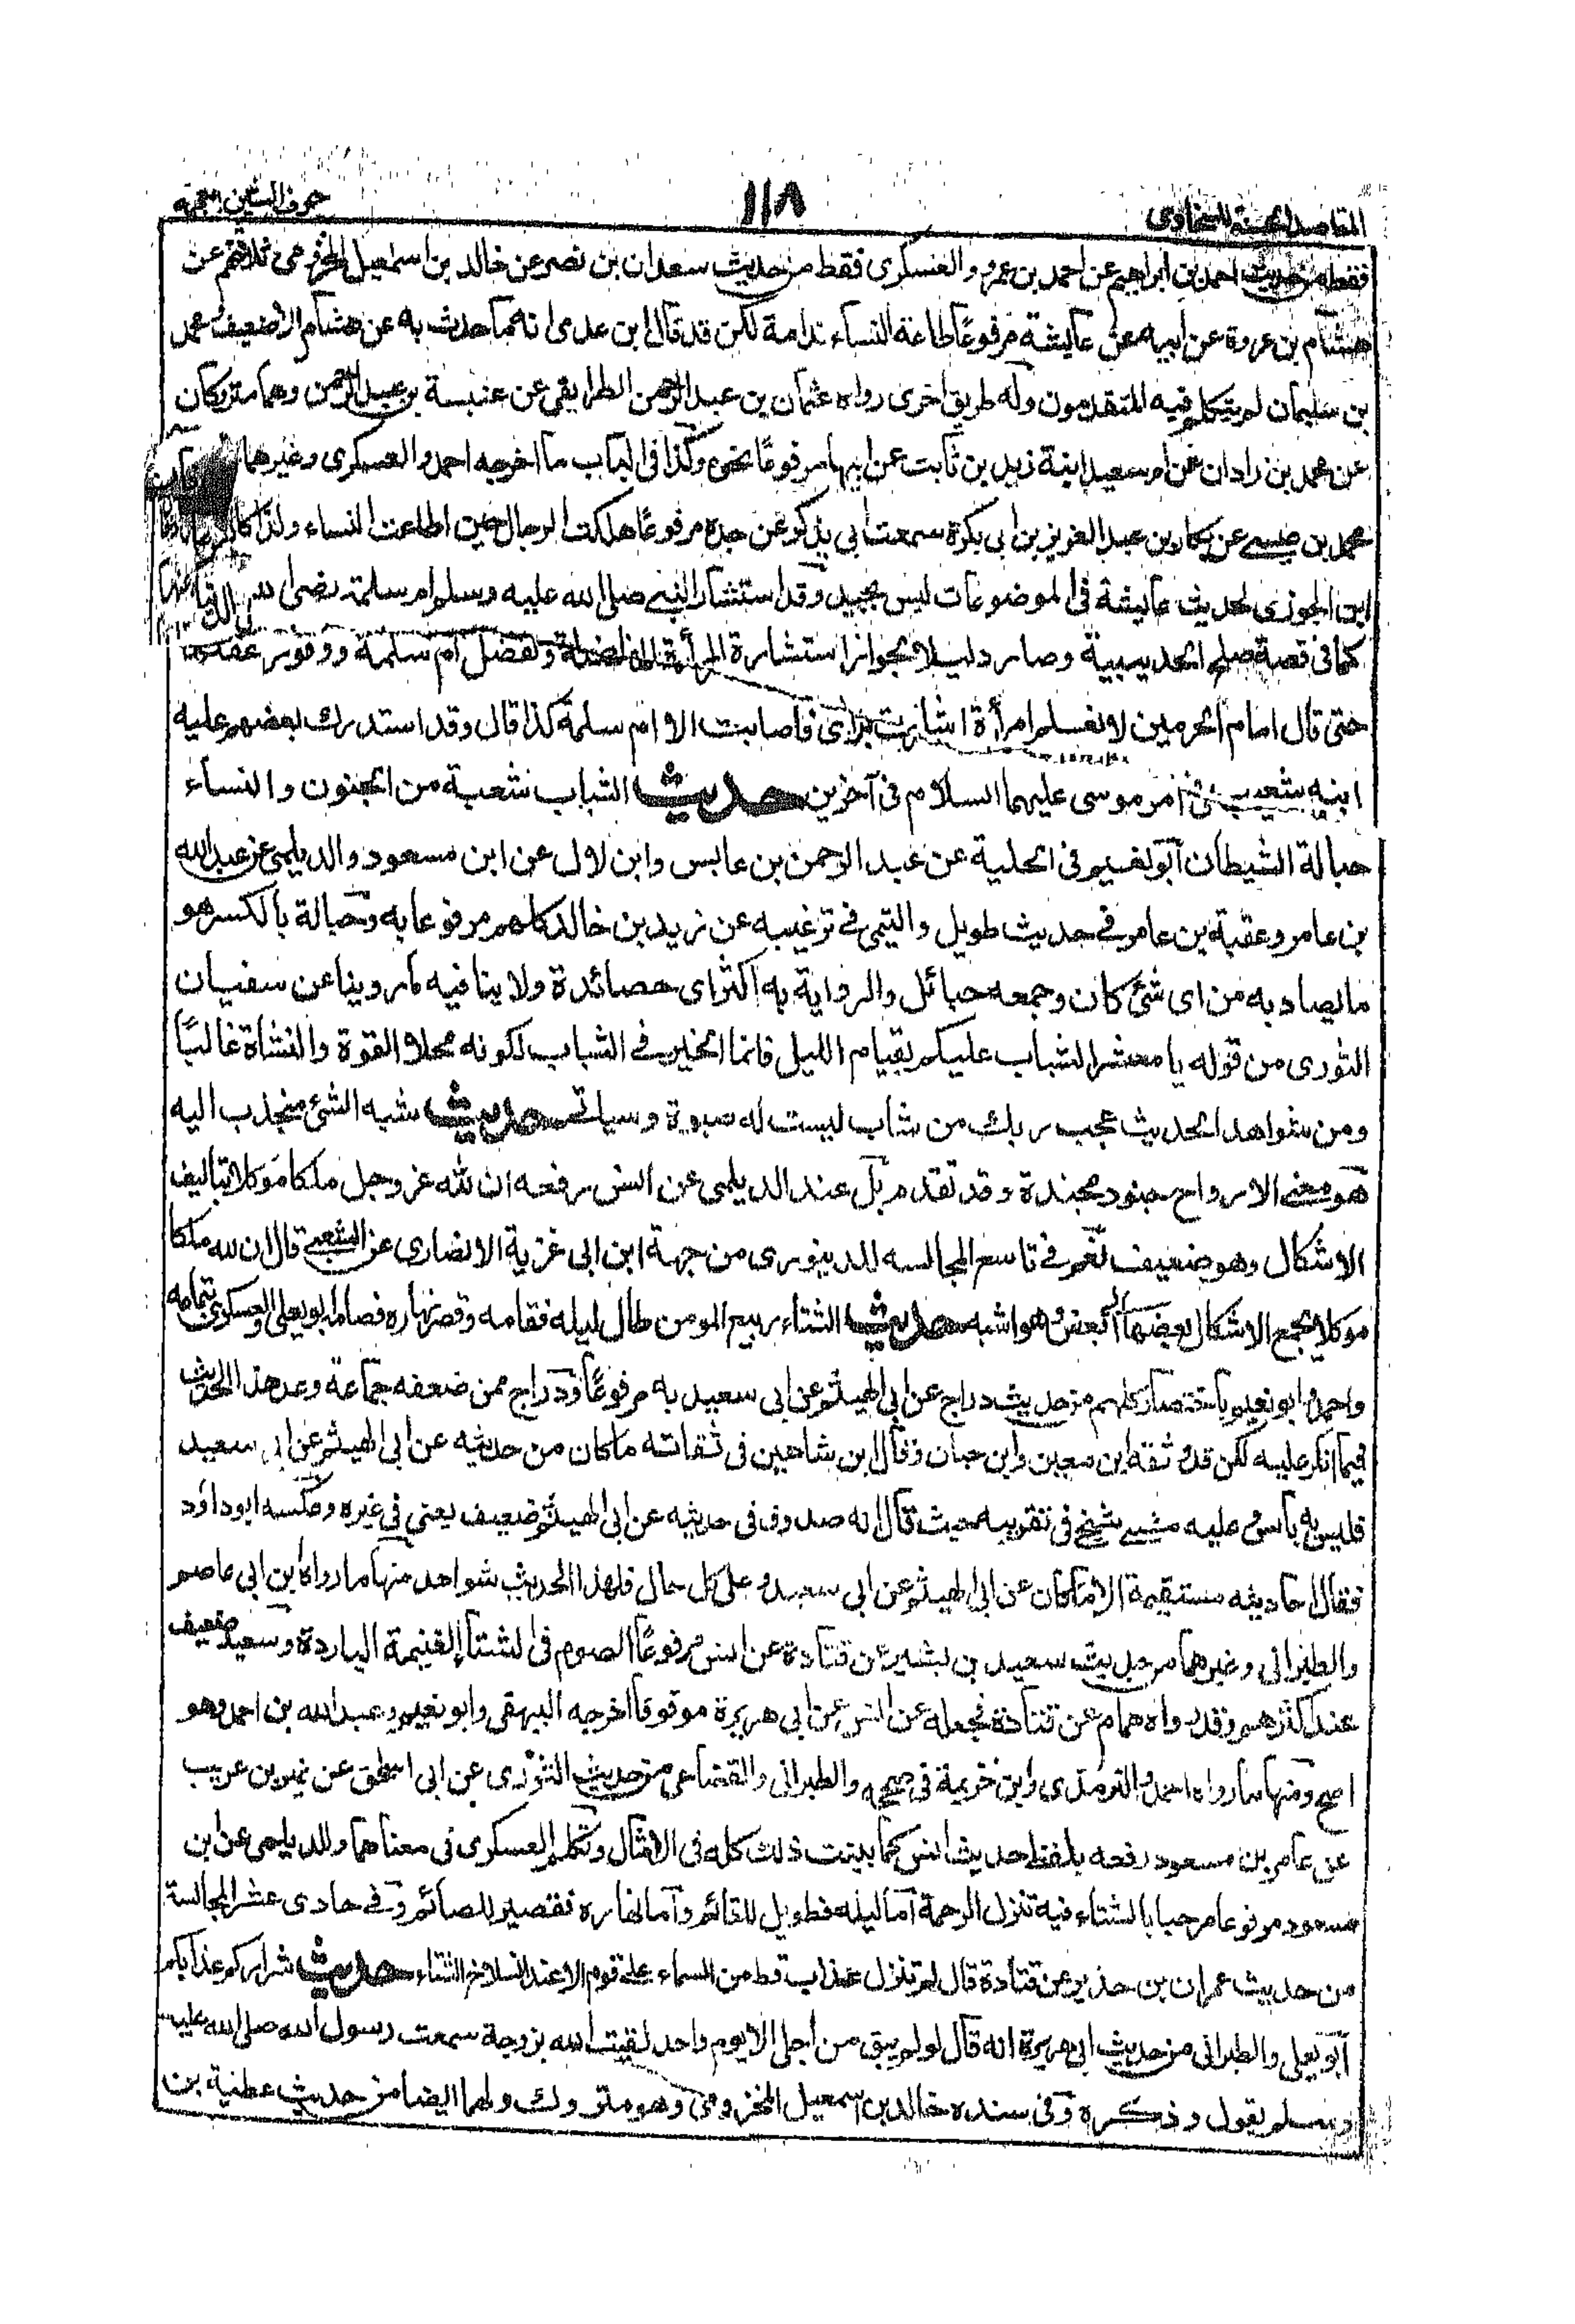 المقاصد الحسنة للسخاوى
١١٨
حرف الشين المعجمة
فقط من حديث احمد بن ابراهيم عن احمد بن عمرو والعسكرى فقط من حديث سعدان بن نصر عن خالد بن اسمعيل المخزومى ثلاثتهم عن
هشام بن عروة عن ابيه عن عايشة مرفوعًا طاعة النساء ندامة لكن قد قال ابن عدى انه ما حدث به عن هشام الا ضعيف ومحمد
بن سليمان لم يتكلم فيه المتقدمون وله طريق اخرى رواه عثمان بن عبد الرحمن الطرايفى عن عنبسة بن عبد الرحمن وهما متروكان
عن محمد بن زادان عن ام سعيد ابنة زيد بن ثابت عن ابيها مرفوعًا نحوه وكذا فى الباب ما اخرجه احمد والعسكرى وغيرهما
محمد بن عيسى عن بكار بن عبد العزيز بن ابى بكرة سمعت ابى يذكر عن جده مرفوعًا هلكت الرجال حين اطاعت النساء ولذا كان
ابن الجوزى لحديث عايشة فى الموضوعات ليس بجيد وقد استشار النبى صلى الله عليه وسلم ام سلمة رضى الله
كما فى قصة صلح الحديبية وصار دليلا لجواز استشارة المرأة الفاضلة ولفضل ام سلمة ووفور عقلها
حتى قال امام الحرمين لا نعلم امرأة اشارت براى فاصابت الا ام سلمة كذا قال وقد استدرك بعضهم عليه
ابنة شعيب فى امر موسى عليهما السلام فى آخرين حديث الشباب شعبة من الجنون والنساء
حبالة الشيطان ابو نعيم فى الحلية عن عبد الرحمن بن عابس وابن لال عن ابن مسعود والديلمى عن عبد الله
بن عامر وعقبة بن عامر فى حديث طويل والتيمى فى ترغيبه عن زيد بن خالد كلهم مرفوعا به وحبالة بالكسر هو
ما يصاد به من اى شئ كان وجمعه حبائل والرواية به اكثر اى مصائدة ولا ينافيه ما روينا عن سفيان
الثورى من قوله يا معشر الشباب عليكم بقيام الليل فانما الخير فى الشباب لكونه محلا للقوة والنشاة غالبًا
ومن شواهد الحديث عجب ربك من شاب ليست له صبوة وسياتى حديث شبه الشئ منجذب اليه
هو معنى الارواح جنود مجندة وقد تقدم بل عند الديلمى عن انس رفعه ان لله عز وجل ملكا موكلا بتاليف
الاشكال وهو ضعيف نعم فى تاسع المجالسه للدينورى من جهة ابن ابى غزية الانصارى عن الشعبى قال ان لله ملكا
موكلا بجمع الاشكال بعضها الى بعض وهو اشبه حديث الشتاء ربيع المومن طال ليله فقامه وقصر نهاره فصامه ابو يعلى والعسكرى بتمامه
واحمد وابو نعيم باختصار كلهم من حديث دراج عن ابى الهيثم عن ابى سعيد به مرفوعًا ودراج ممن ضعفه جماعة وعد هذا الحديث
فيما انكر عليه لكن قد وثقه ابن معين وابن حبان وقال ابن شاهين فى ثقاته ما كان من حديثه عن ابى الهيثم عن ابى سعيد
فليس به باس وعليه مشى شيخى فى تقريبه حيث قال انه صدوق فى حديثه عن ابى الهيثم ضعيف يعنى فى غيره وعكسه ابو داؤد
فقال احاديثه مستقيمة الا ما كان عن ابى الهيثم عن ابى سعيد وعلى كل حال فلهذا الحديث شواهد منها ما رواه ابن ابى عاصم
والطبرانى وغيرهما من حديث سعيد بن بشير عن قتادة عن انس مرفوعًا الصوم فى الشتاء الغنيمة الباردة وسعيد ضعيف
عند اكثرهم وقد رواه همام عن قتادة فجعله عن انس عن ابى هريرة موقوفا اخرجه البيهقى وابو نعيم وعبد الله بن احمد وهو
اصح ومنها ما رواه احمد والترمذى وابن خزيمة فى صحيحه والطبرانى والقضاعى من حديث الثورى عن ابى اسحق عن نمير بن عريب
عن عامر بن مسعود رفعه بلفظ حديث انس كما بينت ذلك كله فى الامثال وتكلم العسكرى فى معناهما وللديلمى عن ابن
مسعود مرفوعا مرحبا بالشتاء فيه تنزل الرحمة اما ليله فطويل للقائم واما نهاره فقصير للصائم وفى حادى عشر المجالسة
من حديث عمران بن حذير عن قتادة قال لم تنزل عذاب قط من السماء على قوم الا عند انسلاخ الشتاء حديث شراركم عذابكم
ابو يعلى والطبرانى من حديث ابى هريرة انه قال لو لم يبق من اجلى الا يوم واحد لقيت الله بزوجة سمعت رسول الله صلى الله عليه
وسلم يقول وذكره وفى سنده خالد بن اسمعيل المخزومى وهو متروك ولهما ايضا من حديث عطية بن